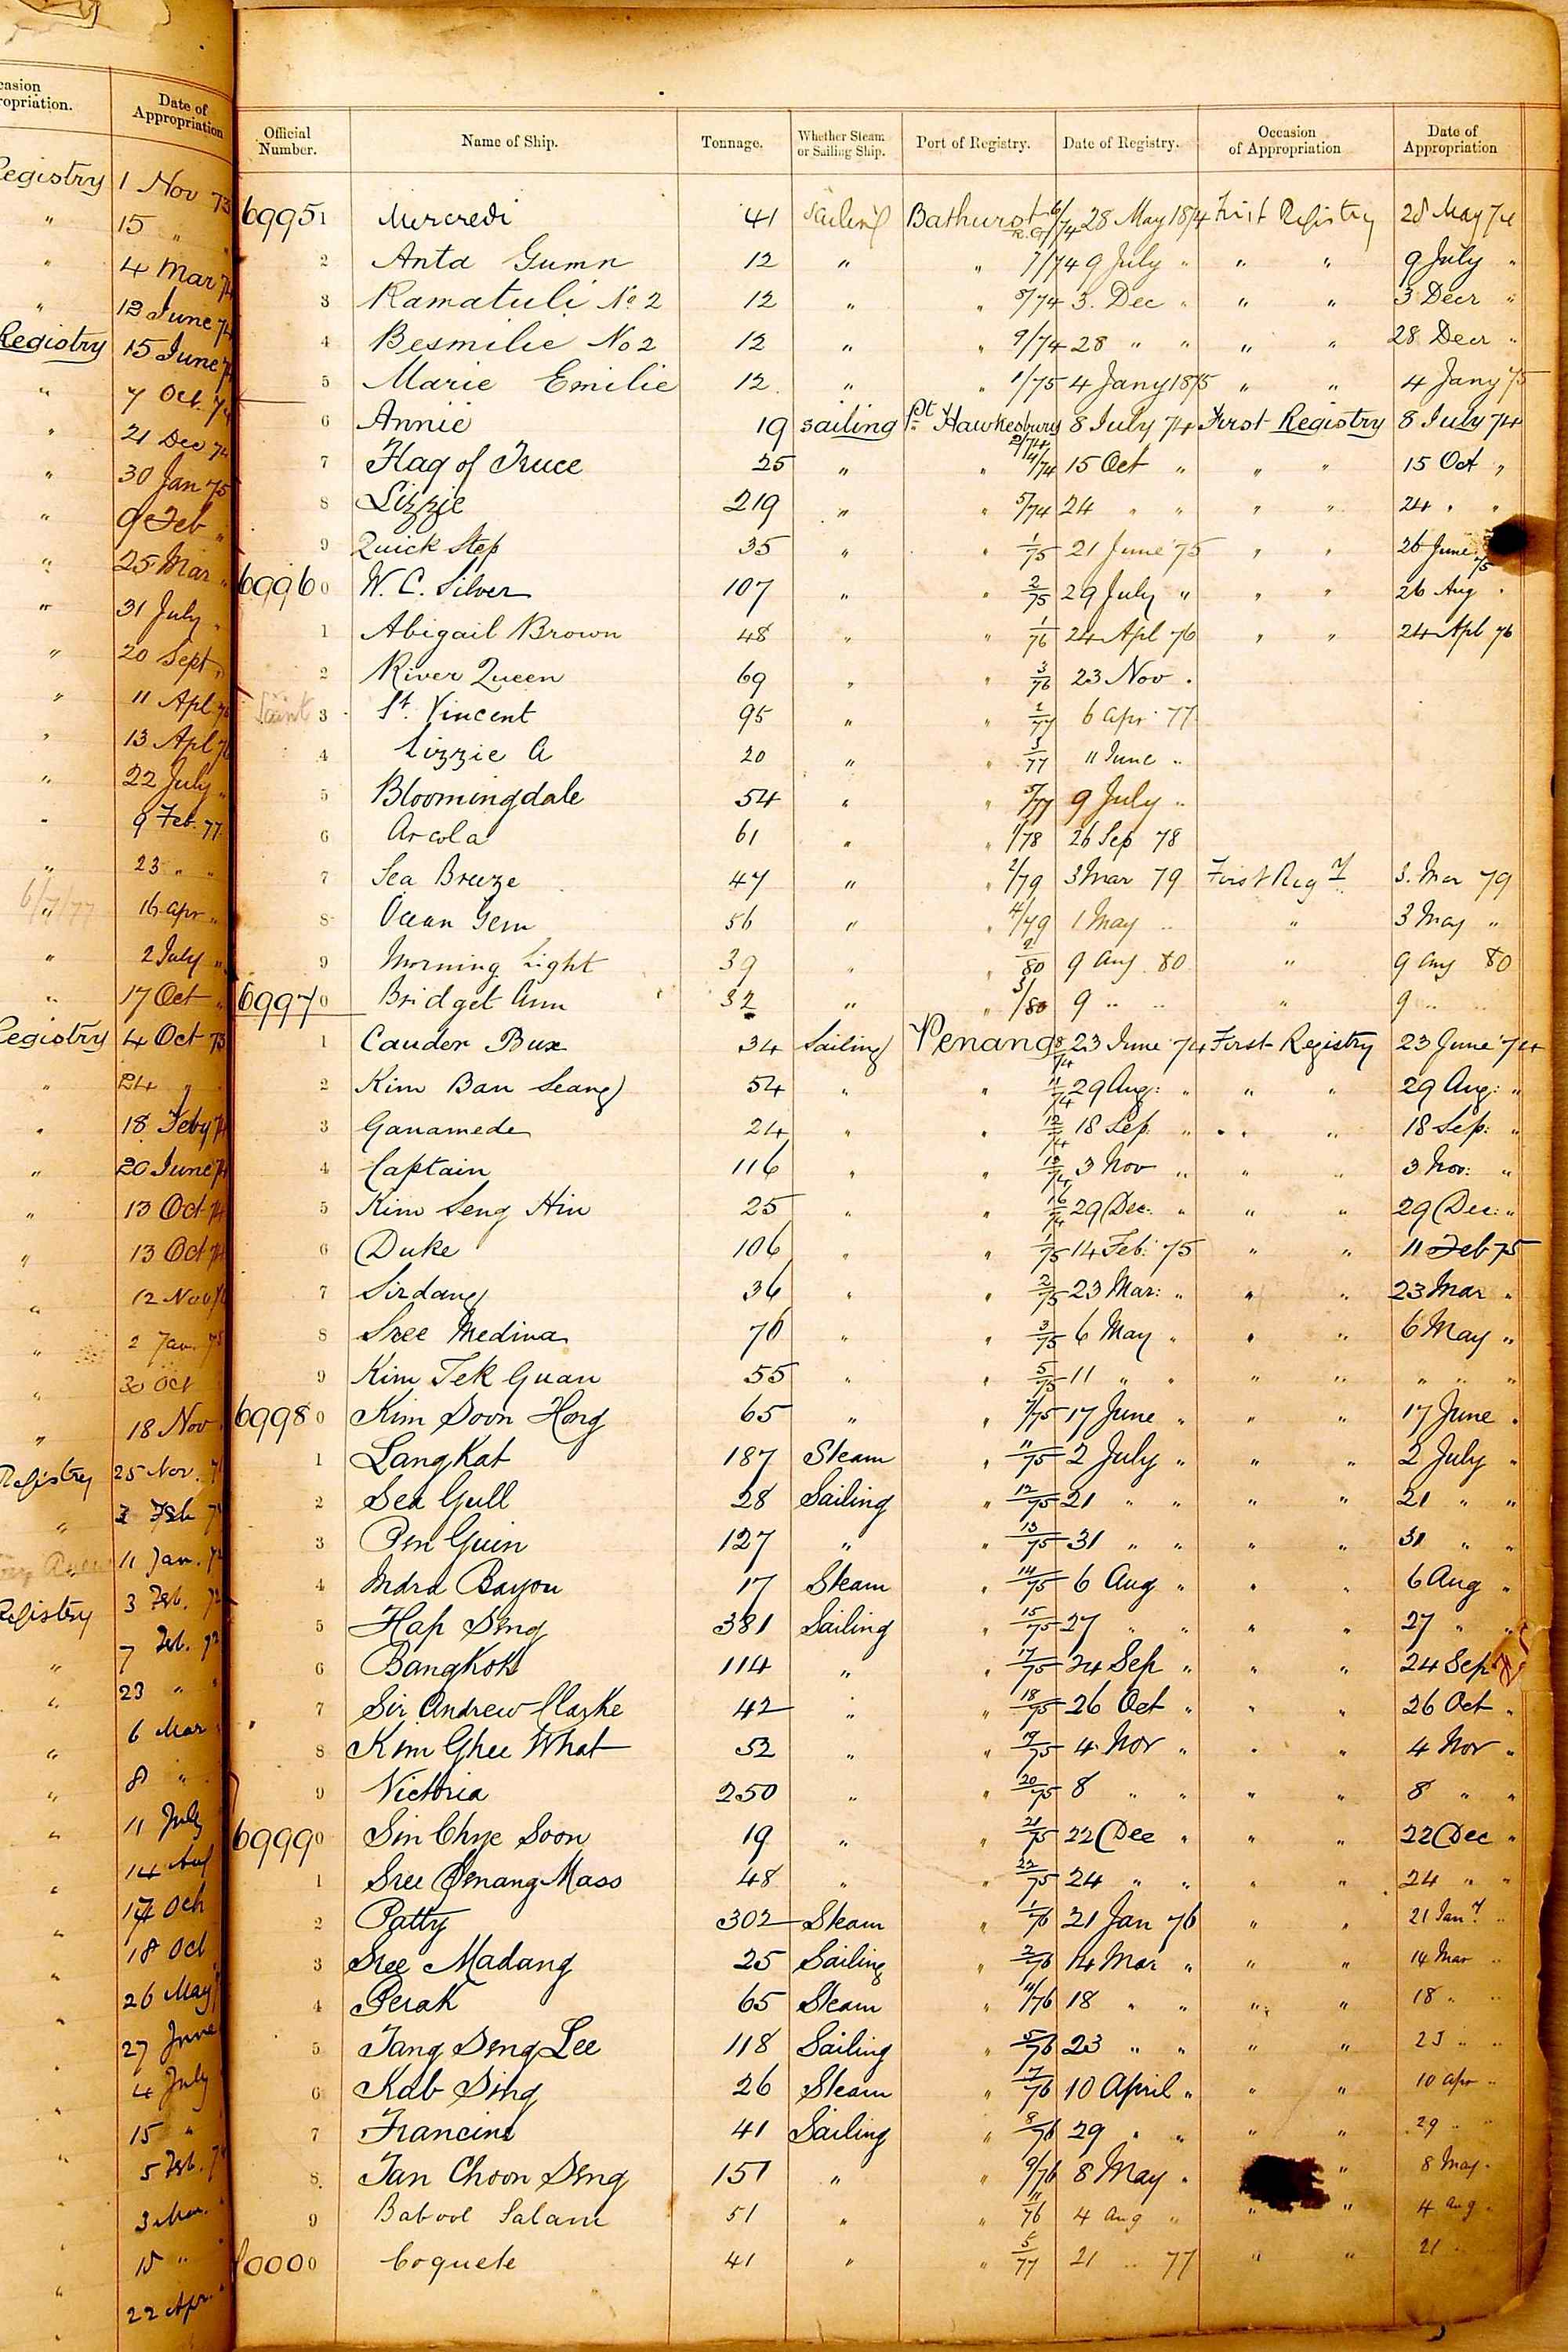 casion
ropriation.
Date of
Appropriation
Registry 1 Nov 73
" 15 " "
" 4 Mar 74
" 12 June 74
Registry 15 June 74
" 7 Oct. 74
" 21 Dec 74
" 30 Jan 75
" 9 Feb "
" 25 Mar "
" 31 July "
" 20 Sept "
" 11 Apl 76
" 13 Apl 76
" 22 July "
" 9 Feb. 77
" 23 " "
6/7/77 " 16 apr "
" 2 July "
" 17 Oct "
Registry 4 Oct 73
" 24 " "
" 18 Feby 74
" 20 June 74
" 13 Oct 74
" 13 Oct 74
" 12 Nov
" 2 Jan. 75
" 30 Oct
" 18 Nov
Registry 25 Nov.
" 3 Feb
11 Jan.
Registry 3 Feb. 72
" 7 Feb. 72
" 23 " "
" 6 Mar
" 8 "
" 11 July
" 14 Aug
" 17 Oct
" 18 Oct
" 26 May
" 27 June
" 4 July
" 15 "
" 5 Feb.
" 3 Mar.
" 15 "
" 22 Apr.
Official Number. Name of Ship. Tonnage. Whether Steam or Sailing Ship. Port of Registry. Date of Registry. Occasion of Appropriation Date of Appropriation
69951 Mercredi 41 Sailing Bathurst R.G. 6/74 28 May 1874 First Registry 28 May 74
2 Anta Gumn 12 " " 7/74 9 July " " " 9 July "
3 Ramatuli No 2 12 " " 8/74 3. Dec " " " 3 Decr "
4 Besmilie No 2 12 " " 9/74 28 " " " " 28 Decr "
5 Marie Emilie 12 " " 1/75 4 Jany 1875 " " 4 Jany 75
6 Annie 19 sailing Pt Hawkesbury 2/74 8 July 74 First Registry 8 July 74
7 Flag of Truce 25 " " 4/74 15 Oct " " " 15 Oct "
8 Lizzie 219 " " 5/74 24 " " " " 24 " "
9 Quick Step 35 " " 1/75 21 June 75 " " 26 June 75
69960 W. C. Silver 107 " " 2/75 29 July " " " 26 Aug "
1 Abigail Brown 48 " " 1/76 24 Apl 76 " " 24 Apl 76
2 River Queen 69 " " 3/76 23 Nov "
Saint 3 St. Vincent 95 " " 1/77 6 apr 77
4 Lizzie A 20 " " 3/77 11 June "
5 Bloomingdale 54 " " 5/77 9 July "
6 Arcola 61 " " 1/78 26 Sep 78
7 Sea Breeze 47 " " 2/79 3 Mar 79 First Regy 3. Mar 79
8 Ocean Gem 56 " " 4/79 1 May " " 3 May "
9 Morning Light 39 " " 2/80 9 Aug 80 " 9 Aug 80
69970 Bridget Ann 32 " " 3/80 9 " " " 9 " "
1 Cauder Bux 34 Sailing Penang 8/74 23 June 74 First Registry 23 June 74
2 Kim Ban Seang 54 " " 11/74 29 Aug: " " " 29 Aug: "
3 Ganamede 24 " " 12/74 18 Sep: " " " 18 Sep: "
4 Captain 116 " " 13/74 3 Nov " " " 3 Nov: "
5 Kim Seng Hin 25 " " 16/74 29 Dec: " " " 29 Dec: "
6 Duke 106 " " 1/75 14 Feb: 75 " " 11 Feb 75
7 Sirdang 36 " " 2/75 23 Mar: " " " 23 Mar "
8 Sree Medina 76 " " 3/75 6 May " " " 6 May "
9 Kim Tek Guan 55 " " 5/75 11 " " " " " " "
69980 Kim Soon Hong 65 " " 7/75 17 June " " " 17 June "
1 Langkat 187 Steam " 11/75 2 July " " " 2 July "
2 Sea Gull 28 Sailing " 12/75 21 " " " " 21 " "
3 Pen Guin 127 " " 13/75 31 " " " " 31 " "
4 Mdra Bayou 17 Steam " 14/75 6 Aug " " " 6 Aug "
5 Hap Seng 381 Sailing " 15/75 27 " " " " 27 " "
6 Bangkok 114 " " 17/75 24 Sep " " " 24 Sep
7 Sir Andrew Clarke 42 " " 18/75 26 Oct " " " 26 Oct "
8 Kim Ghee What 52 " " 19/75 4 Nov " " " 4 Nov "
9 Victoria 250 " " 20/75 8 " " " " 8 " "
69990 Sin Chye Soon 19 " " 21/75 22 Dec " " " 22 Dec "
1 Sree Penang Mass 48 " " 22/75 24 " " " " 24 " "
2 Patty 302 Steam " 1/76 21 Jan 76 " " 21 Jany "
3 Sree Madang 25 Sailing " 2/76 14 Mar " " " 14 Mar "
4 Perak 65 Steam " 4/76 18 " " " " 18 " "
5 Tang Seng Lee 118 Sailing " 5/76 23 " " " " 23 " "
6 Kab Sing 26 Steam " 7/76 10 April " " " 10 apr "
7 Francine 41 Sailing " 8/76 29 " " " " 29 " "
8 Tan Choon Seng 151 " " 9/76 8 May " " 8 May "
9 Babool Salam 51 " " 11/76 4 Aug " " " 4 Aug "
70000 Coquete 41 " " 5/77 21 " 77 " " 21 "